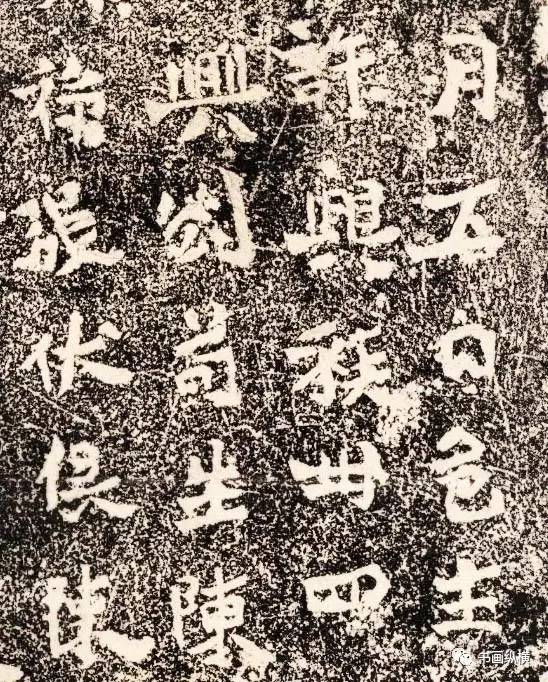 月五日邑主
許興族卅四
興劉苟生陳
祿張伏保陳
书画纵横